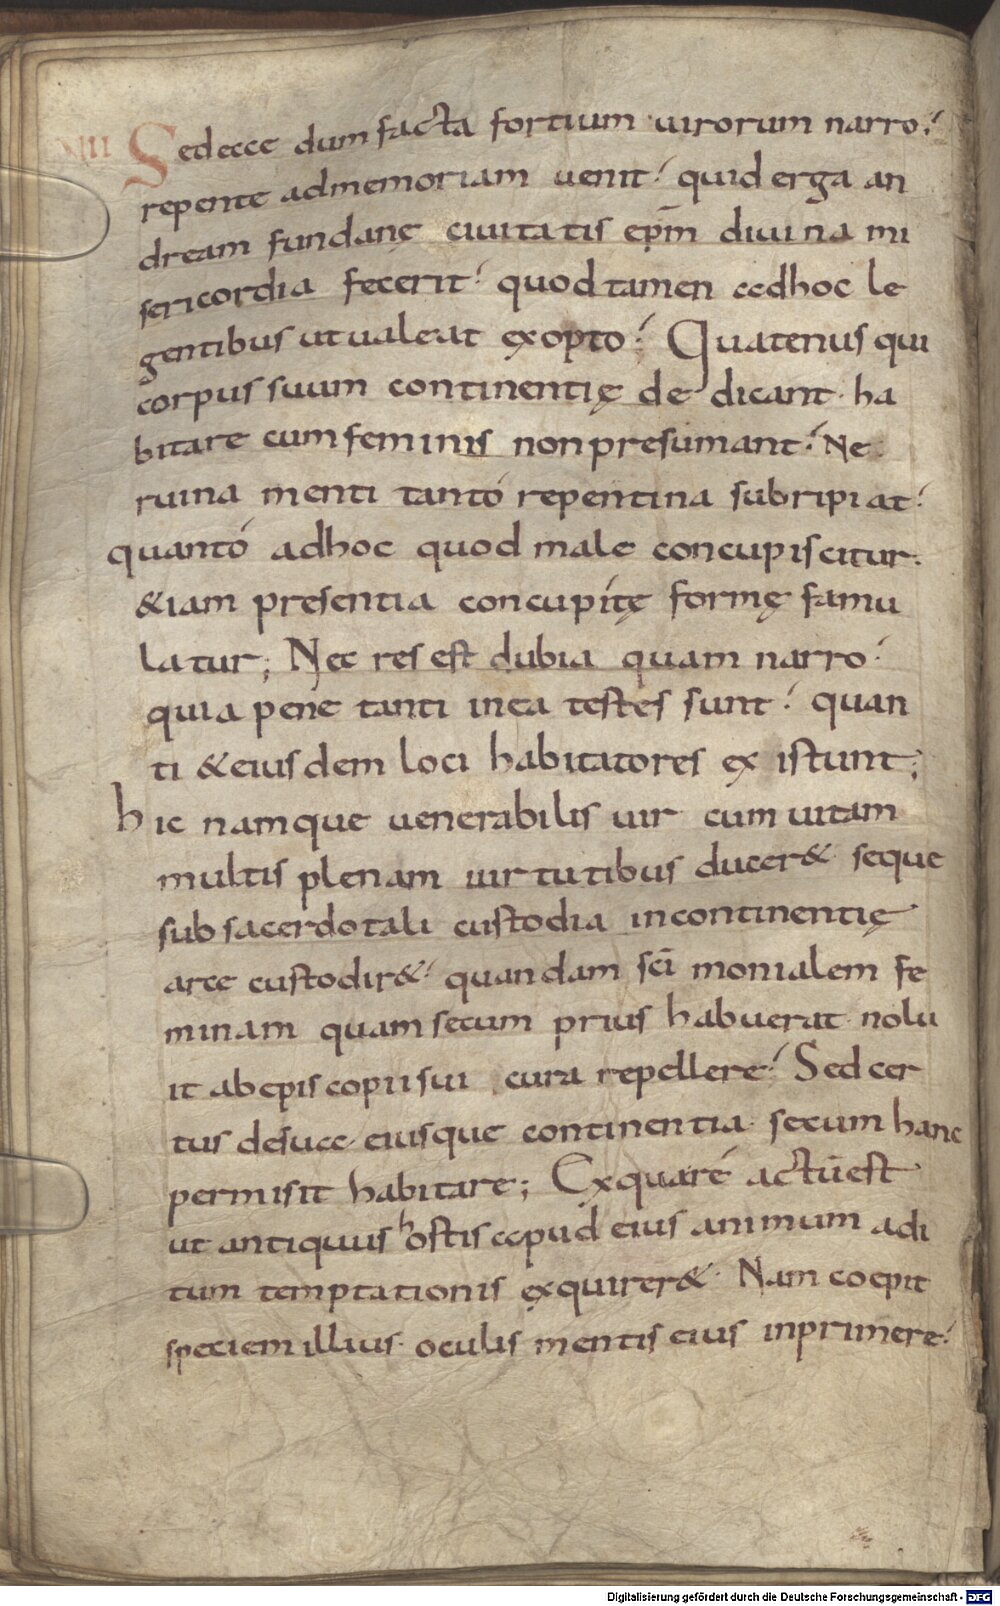 VIII Sedecce dum facta fortium uirorum narro;
repente admemoriam uenit; quid erga an
dream fundanę ciuitatis ep̄m diuina mi
sericordia fecerit; quod tamen adhoc le
gentibus utualeat exopto; Quatenus qui
corpus suum continentię de dicant· ha
bitare cumfeminis nonpresumant; Ne
ruina menti tantó repentina subripiat;
quantó adhoc quod male concupiscitur·
&iam presentia concupitę formę famu
latur; Nec res est dubia quam narro;
quia pene tanti inea testes sunt; quan
ti &eiusdem loci habitatores existunt;
hic namque uenerabilis uir cum uitam
multis plenam uirtutibus ducer& seque
sub sacerdotali custodia incontinentię
arce custodir&; quandam sc̄i monialem fe
minam quam secum prius habuerat· nolu
it abepiscopii sui cura repellere; Sed cer
tus desua eiusque continentia· secum hanc
permisit habitare; Exquaré actūest
ut antiquus hostis apud eius animum adi
tum temptationis exquirer&· Nam coepit
speciem illius· oculis mentis eius inprimere;
Digitalisierung gefördert durch die Deutsche Forschungsgemeinschaft - DFG